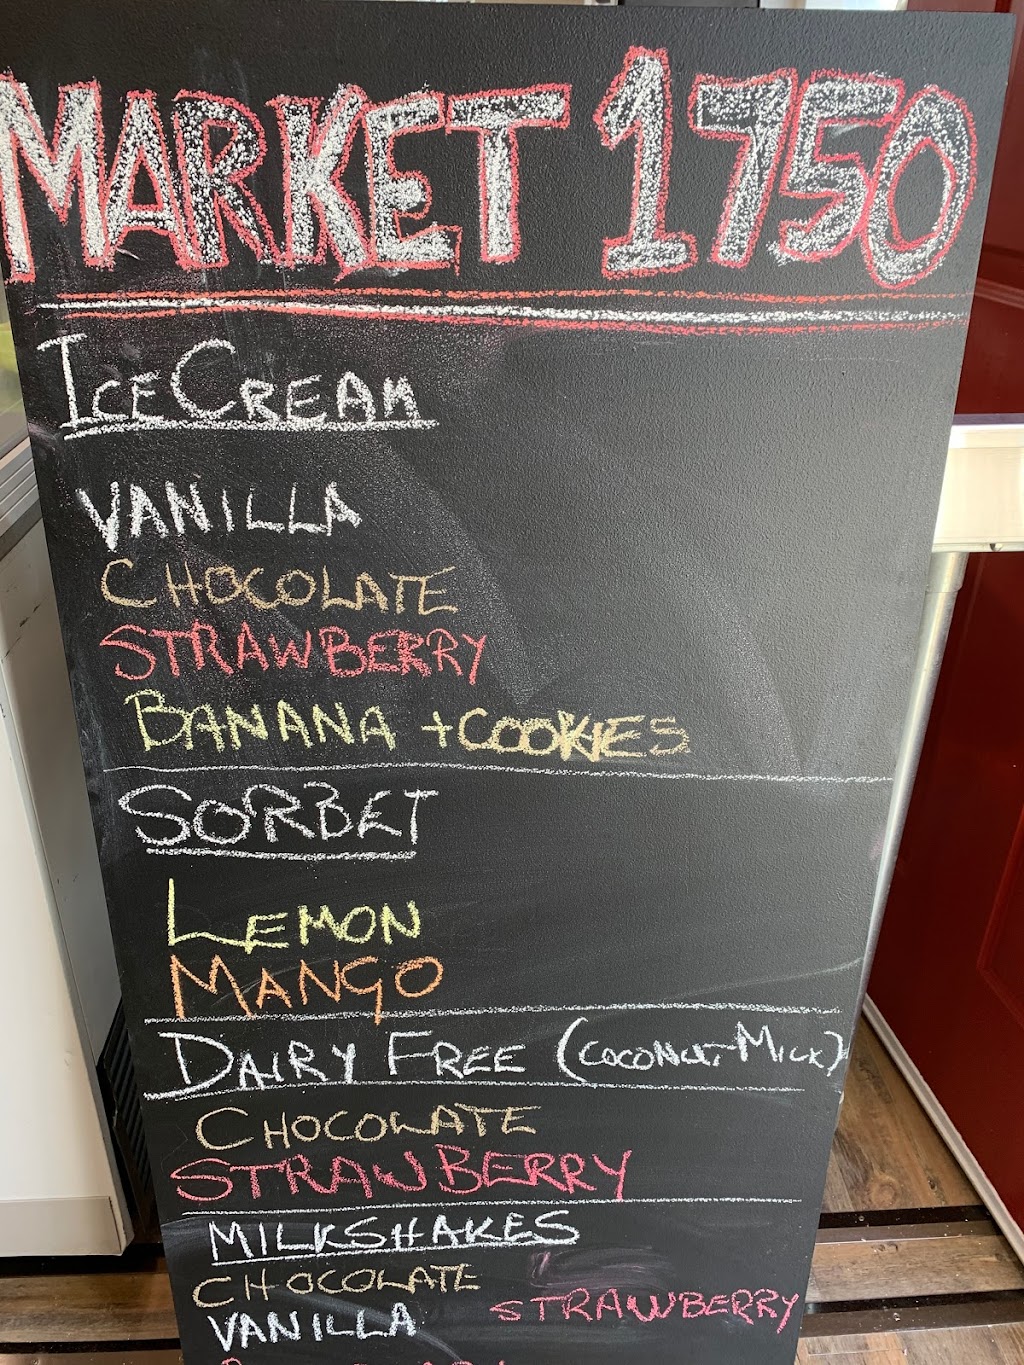 MARKET 1750
ICE CREAM
VANILLA
CHOCOLATE
STRAWBERRY
BANANA + COOKIES
SORBET
LEMON
MANGO
DAIRY FREE (COCONUT MILK)
CHOCOLATE
STRAWBERRY
MILKSHAKES
CHOCOLATE
VANILLA STRAWBERRY